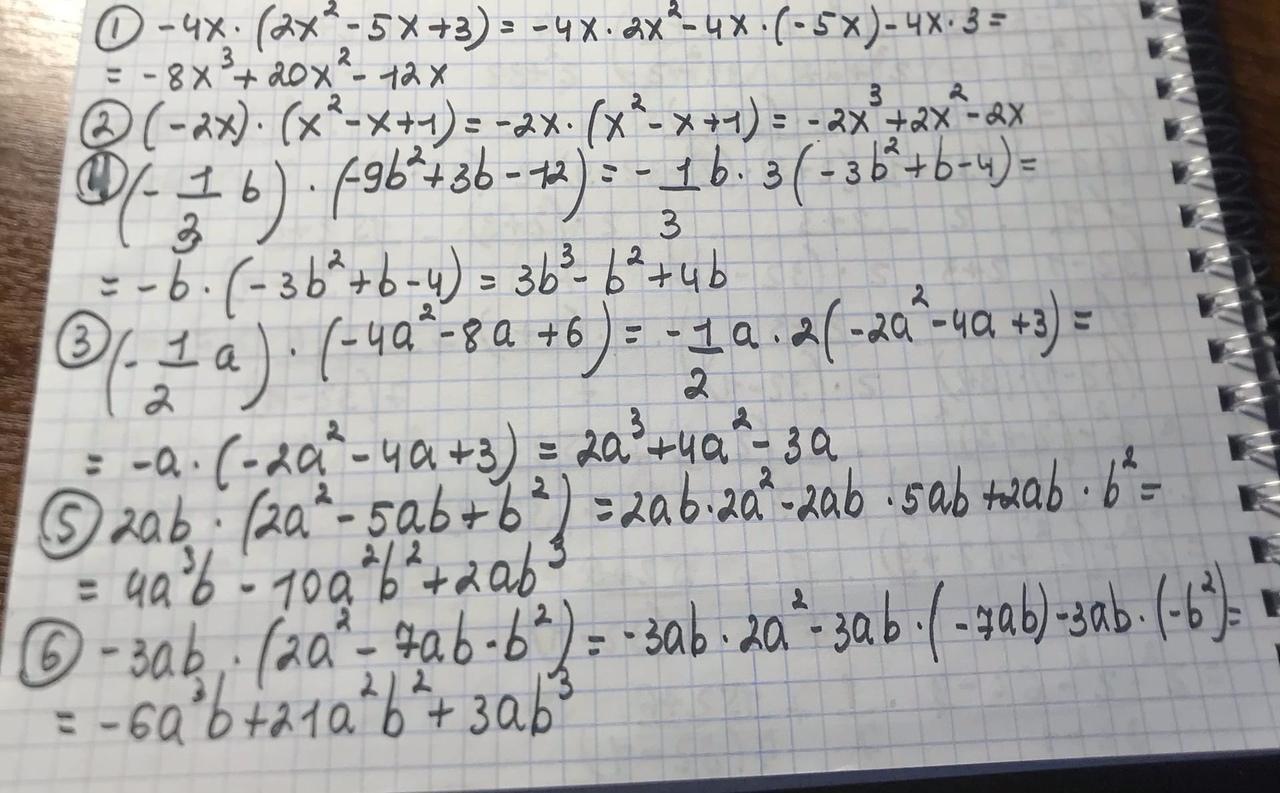 ① -4x·(2x²-5x+3)=-4x·2x²-4x·(-5x)-4x·3=
=-8x³+20x²-12x
② (-2x)·(x²-x+1)=-2x·(x²-x+1)=-2x³+2x²-2x
④ (-1/3 b)·(-9b²+3b-12)=-1/3 b·3(-3b²+b-4)=
=-b·(-3b²+b-4)=3b³-b²+4b
③ (-1/2 a)·(-4a²-8a+6)=-1/2 a·2(-2a²-4a+3)=
=-a·(-2a²-4a+3)=2a³+4a²-3a
⑤ 2ab·(2a²-5ab+b²)=2ab·2a²-2ab·5ab+2ab·b²=
=4a³b-10a²b²+2ab³
⑥ -3ab·(2a²-7ab-b²)=-3ab·2a²-3ab·(-7ab)-3ab·(-b²)=
=-6a³b+21a²b²+3ab³